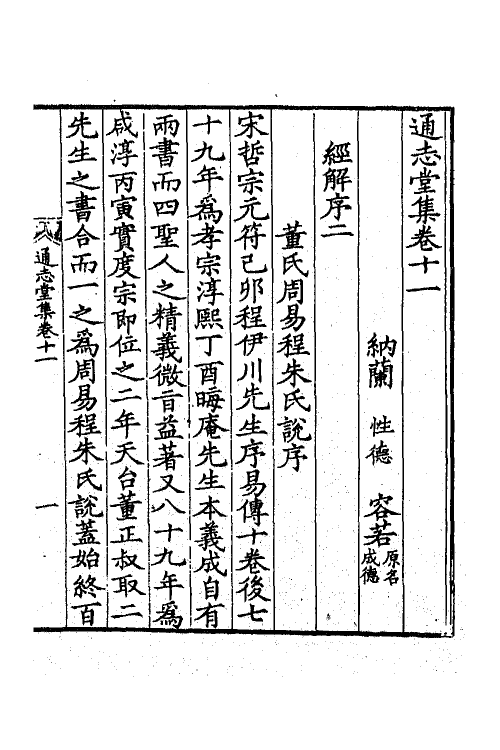 通志堂集卷十一
納蘭 性德 容若原名成德
經解序二
董氏周易程朱氏說序
宋哲宗元符己卯程伊川先生序易傳十卷後七
十九年爲孝宗淳熙丁酉晦庵先生本義成自有
兩書而四聖人之精義微旨益著又八十九年爲
咸淳丙寅實度宗即位之二年天台董正叔取二
先生之書合而一之爲周易程朱氏說蓋始終百
通志堂集卷十一
一